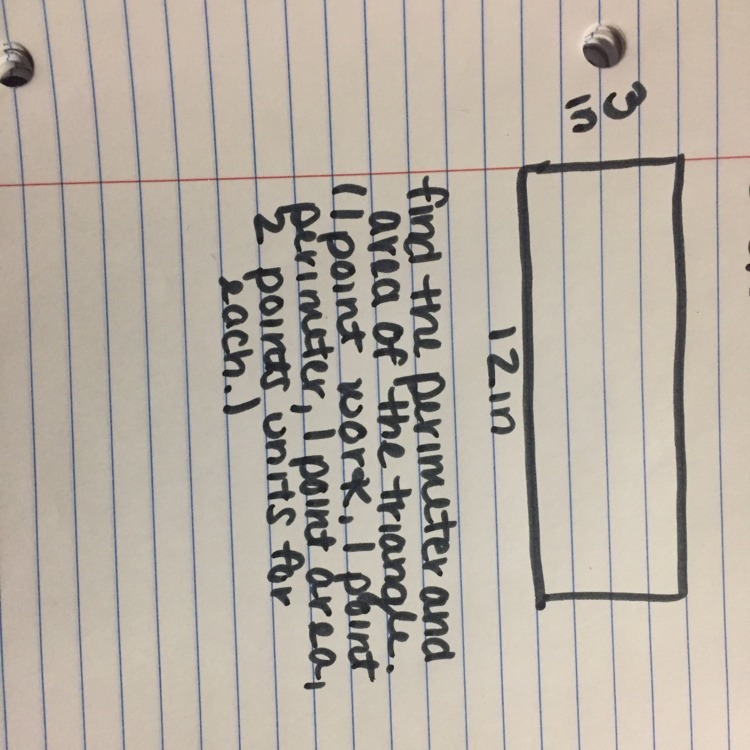 3
in
12in
find the perimeter and
area of the triangle.
(1 point work, 1 point
perimeter, 1 point area,
2 points units for
each.)